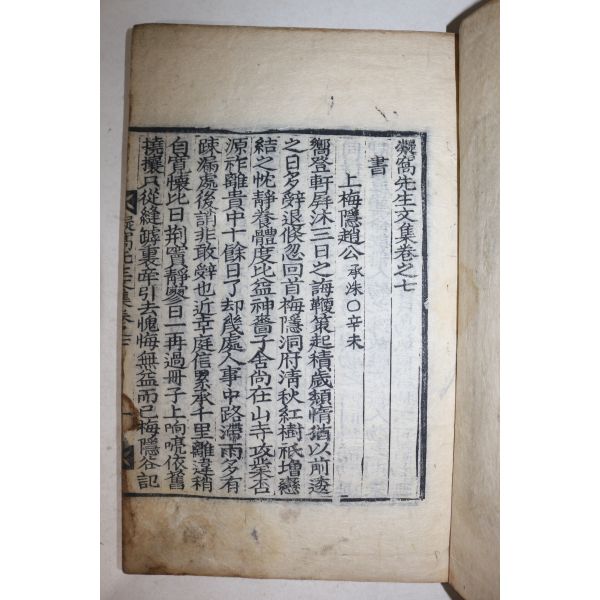 凝窩先生文集卷之七
書
上梅隱趙公 承洙○辛未
嚮登軒屏沐三日之誨鞭策起積歲頹惰猶以前逵
之日多辭退倏忽回首梅隱洞府淸秋紅樹祇增戀
結之忱靜養體度比益神嗇子舍尙在山寺攻業否
源祚離貴中十餘日了却幾處人事中路滯雨多有
疎漏處後誚非敢辭也近幸庭信累承千里離違稍
自寬懷比日荆竇靜寥日一再過冊子上呴喣依舊
撓攘只從縫罅裏牽引去愧悔無益而已梅隱谷記
凝窩先生文集 卷七 一